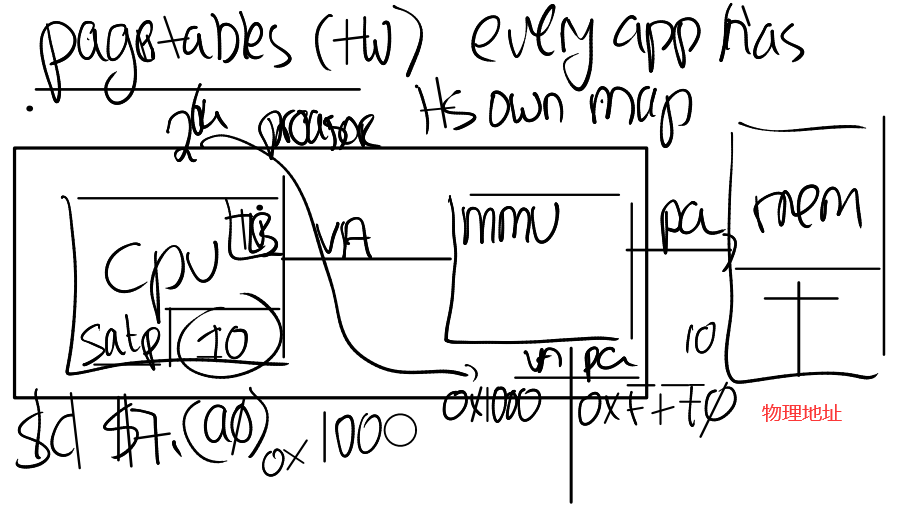 pagetables (HW) every app has
its own map
processor
CPU
VA
MMU
pa
mem
satp 10
10
VA pa
0x1000 0xFFF0
sd $7,(a0) 0x1000
物理地址